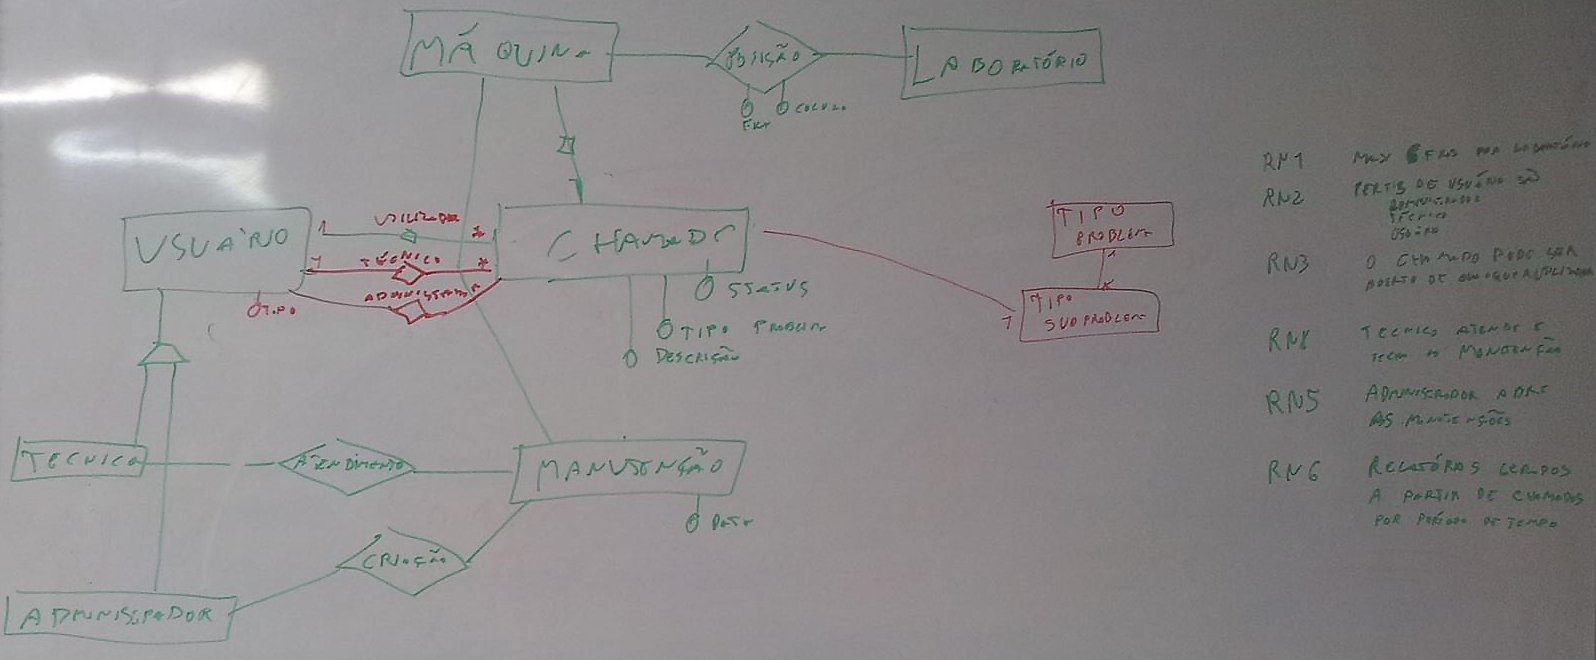 MÁQUINA
POSIÇÃO
LABORATÓRIO
COLUNA
USUÁRIO
1
*
CHAMADO
1
TÉCNICO
*
TIPO
STATUS
TIPO PROBLEMA
DESCRIÇÃO
TIPO
PROBLEMA
1
*
TIPO
SUBPROBLEMA
1
TECNICO
ATENDIMENTO
MANUTENÇÃO
DATA
CRIAÇÃO
ADMINISTRADOR
RN1 MAX 6 POR LABORATÓRIO
RN2 PERFIS DE USUÁRIO SÃO
ADMINISTRADOR
TÉCNICO
USUÁRIO
RN3 O CHAMADO PODE SER
ABERTO DE QUALQUER
TECNICO ATENDE E
MANUTENÇÃO
RN5 ADMINISTRADOR ABRE
AS MANUTENÇÕES
RN6 RELATÓRIOS GERADOS
A PARTIR DE CHAMADOS
POR PERÍODO DE TEMPO